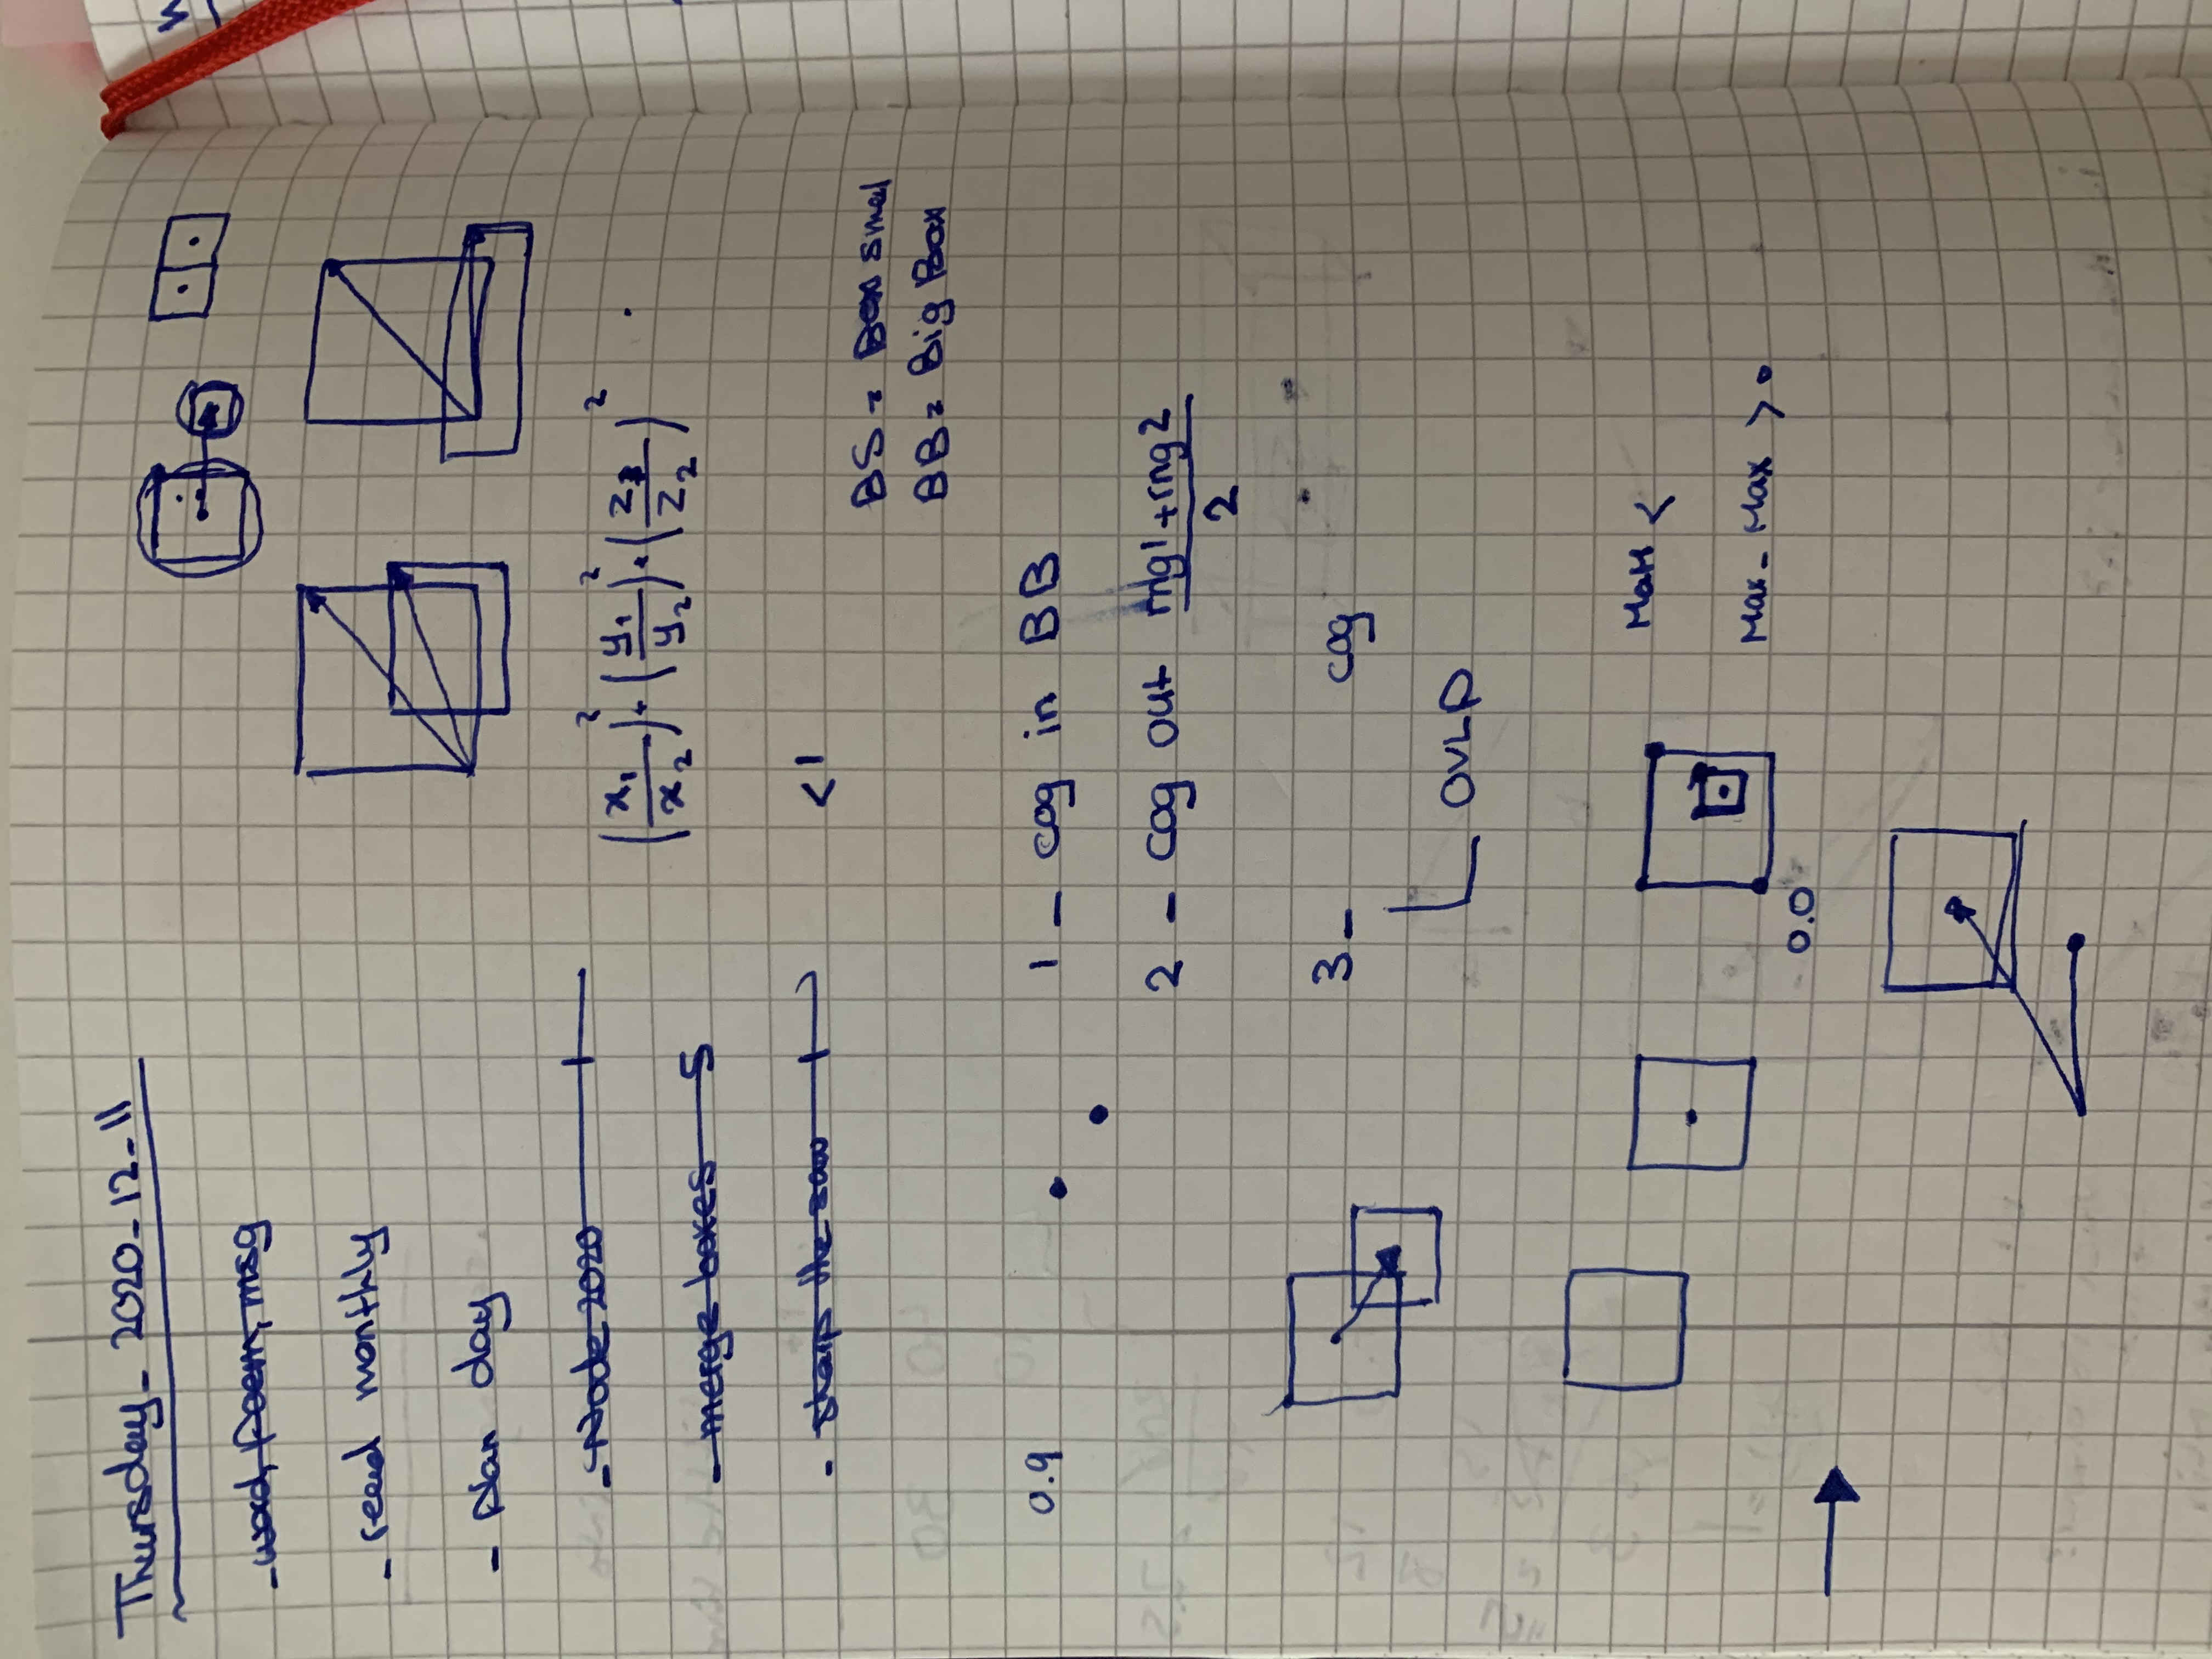 Thursday_ 2020-12-11
- word, Poem, msg
- read monthly
- Plan day
- Node 2020 1
- merge boxes 5
- sharp the saw 1
(x₁/x₂)² + (y₁/y₂)² + (z₁/z₂)²
< 1
BS = Box smal
BB = Big Box
0.9
1 - cog in BB
2 - cog out (rng1+rng2)/2
3 - cog
OVLP
<
Max - Max > 0
0.0